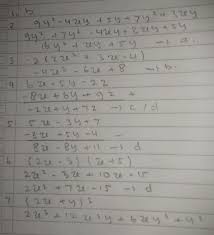 1. b
2 9y² - 4xy + 5y + 7y² + 3xy
9y² + 7y² - 4xy + 3xy + 5y
16y² + xy + 5y → a.
3. -2(2x² + 3x - 4)
-4x² - 6x + 8 → b.
4 6x - 5y - 2z
-8x + 6y + 9z +
-2x + y + 7z → c/d
5 5x - 3y + 7
-3x + 5y - 4 -
8x - 8y + 11 → d
6 (2x - 3) (x + 5)
2x² - 3x + 10x - 15
2x² + 7x - 15 → d
7 (2x + y)³